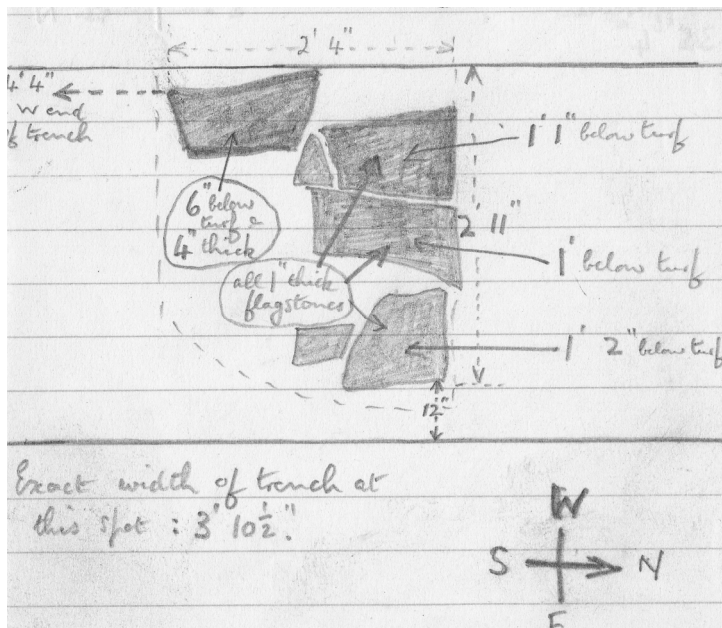 2' 4"
4' 4"
W end
of trench
1' 1" below turf
6" below
turf &
4" thick
2' 11"
1' below turf
all 1" thick
flagstones
1' 2" below turf
12"
Exact width of trench at
this spot : 3' 10½".
W
S
N
E